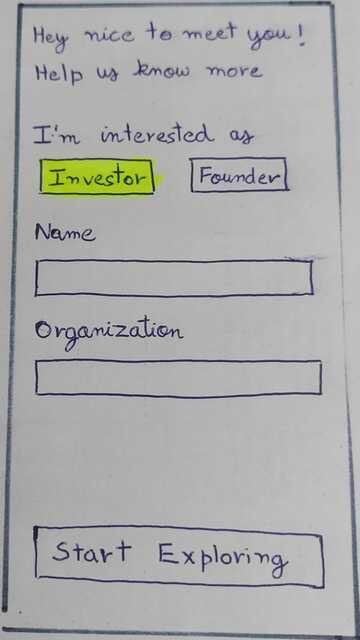 Hey nice to meet you!
Help us know more
I'm interested as
Investor Founder
Name
Organization
Start Exploring